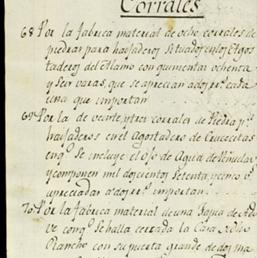 Corrales
68 Por la fabrica material de ocho corrales de
piedras para hasaderos situados en los Agos
taderos del Alamo con quinientas ochenta
y seis varas, que se aprecian a dos rr.s cada
una que importan
69 Por la de veinte, y tres corrales de Piedra p.a
hasaderos en el Agostadero de Crucecitas
enq.e se incluye el Ojo de Agua de
y componen mil docientas setenta, y cinco v.s
apreciadas a dos rr.s importan
70 Por la fabrica material de una Tapia de Ado
ve conq.e se halla cerrada la Casa
Rancho con su puerta grande de dos ma